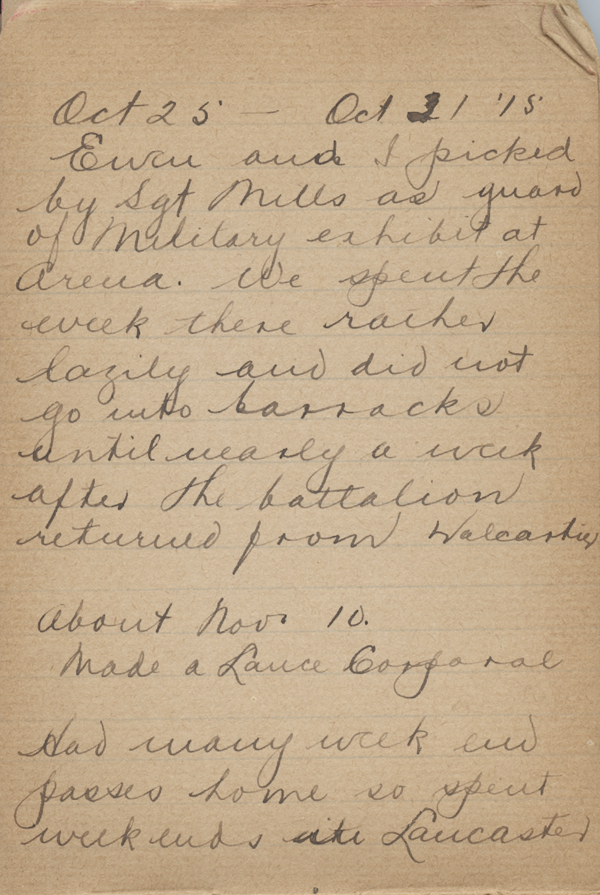 Oct 25 - Oct 31 '15
Ewen and I picked
by Sgt Mills as guard
of Military exhibit at
Arena. We spent the
week there rather
lazily and did not
go into barracks
until nearly a week
after the battalion
returned from Valcartier
About Nov. 10.
Made a Lance Corporal
Had many week end
passes home so spent
week ends in Lancaster